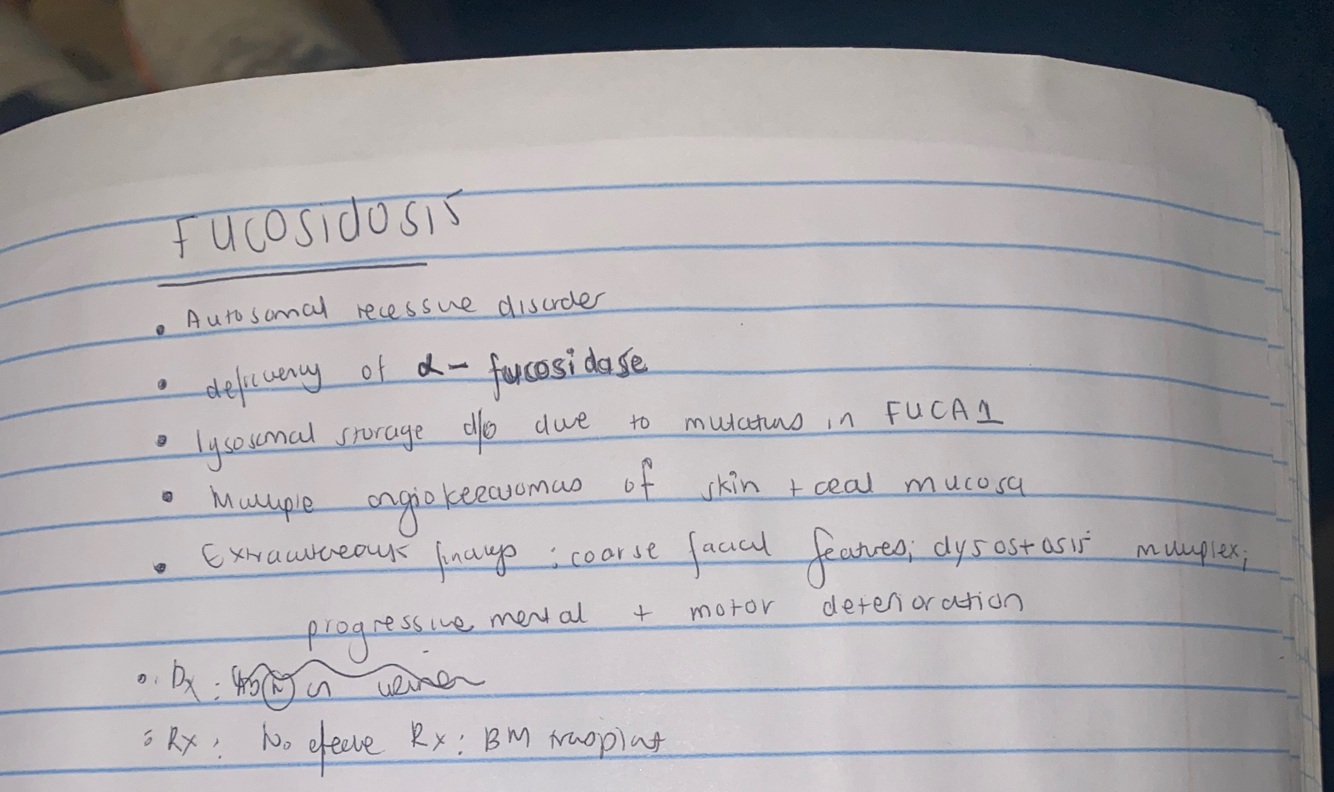 FUCOSIDOSIS
• Autosomal recessive disorder
• deficiency of α- fucosidase
• lysosomal storage d/o due to mutations in FUCA1
• Multiple angiokeratomas of skin + oral mucosa
• Extracutaneous findings : coarse facial features; dysostosis multiplex;
progressive mental + motor deterioration
• Dx : in
• Rx : No effective Rx : BM transplant